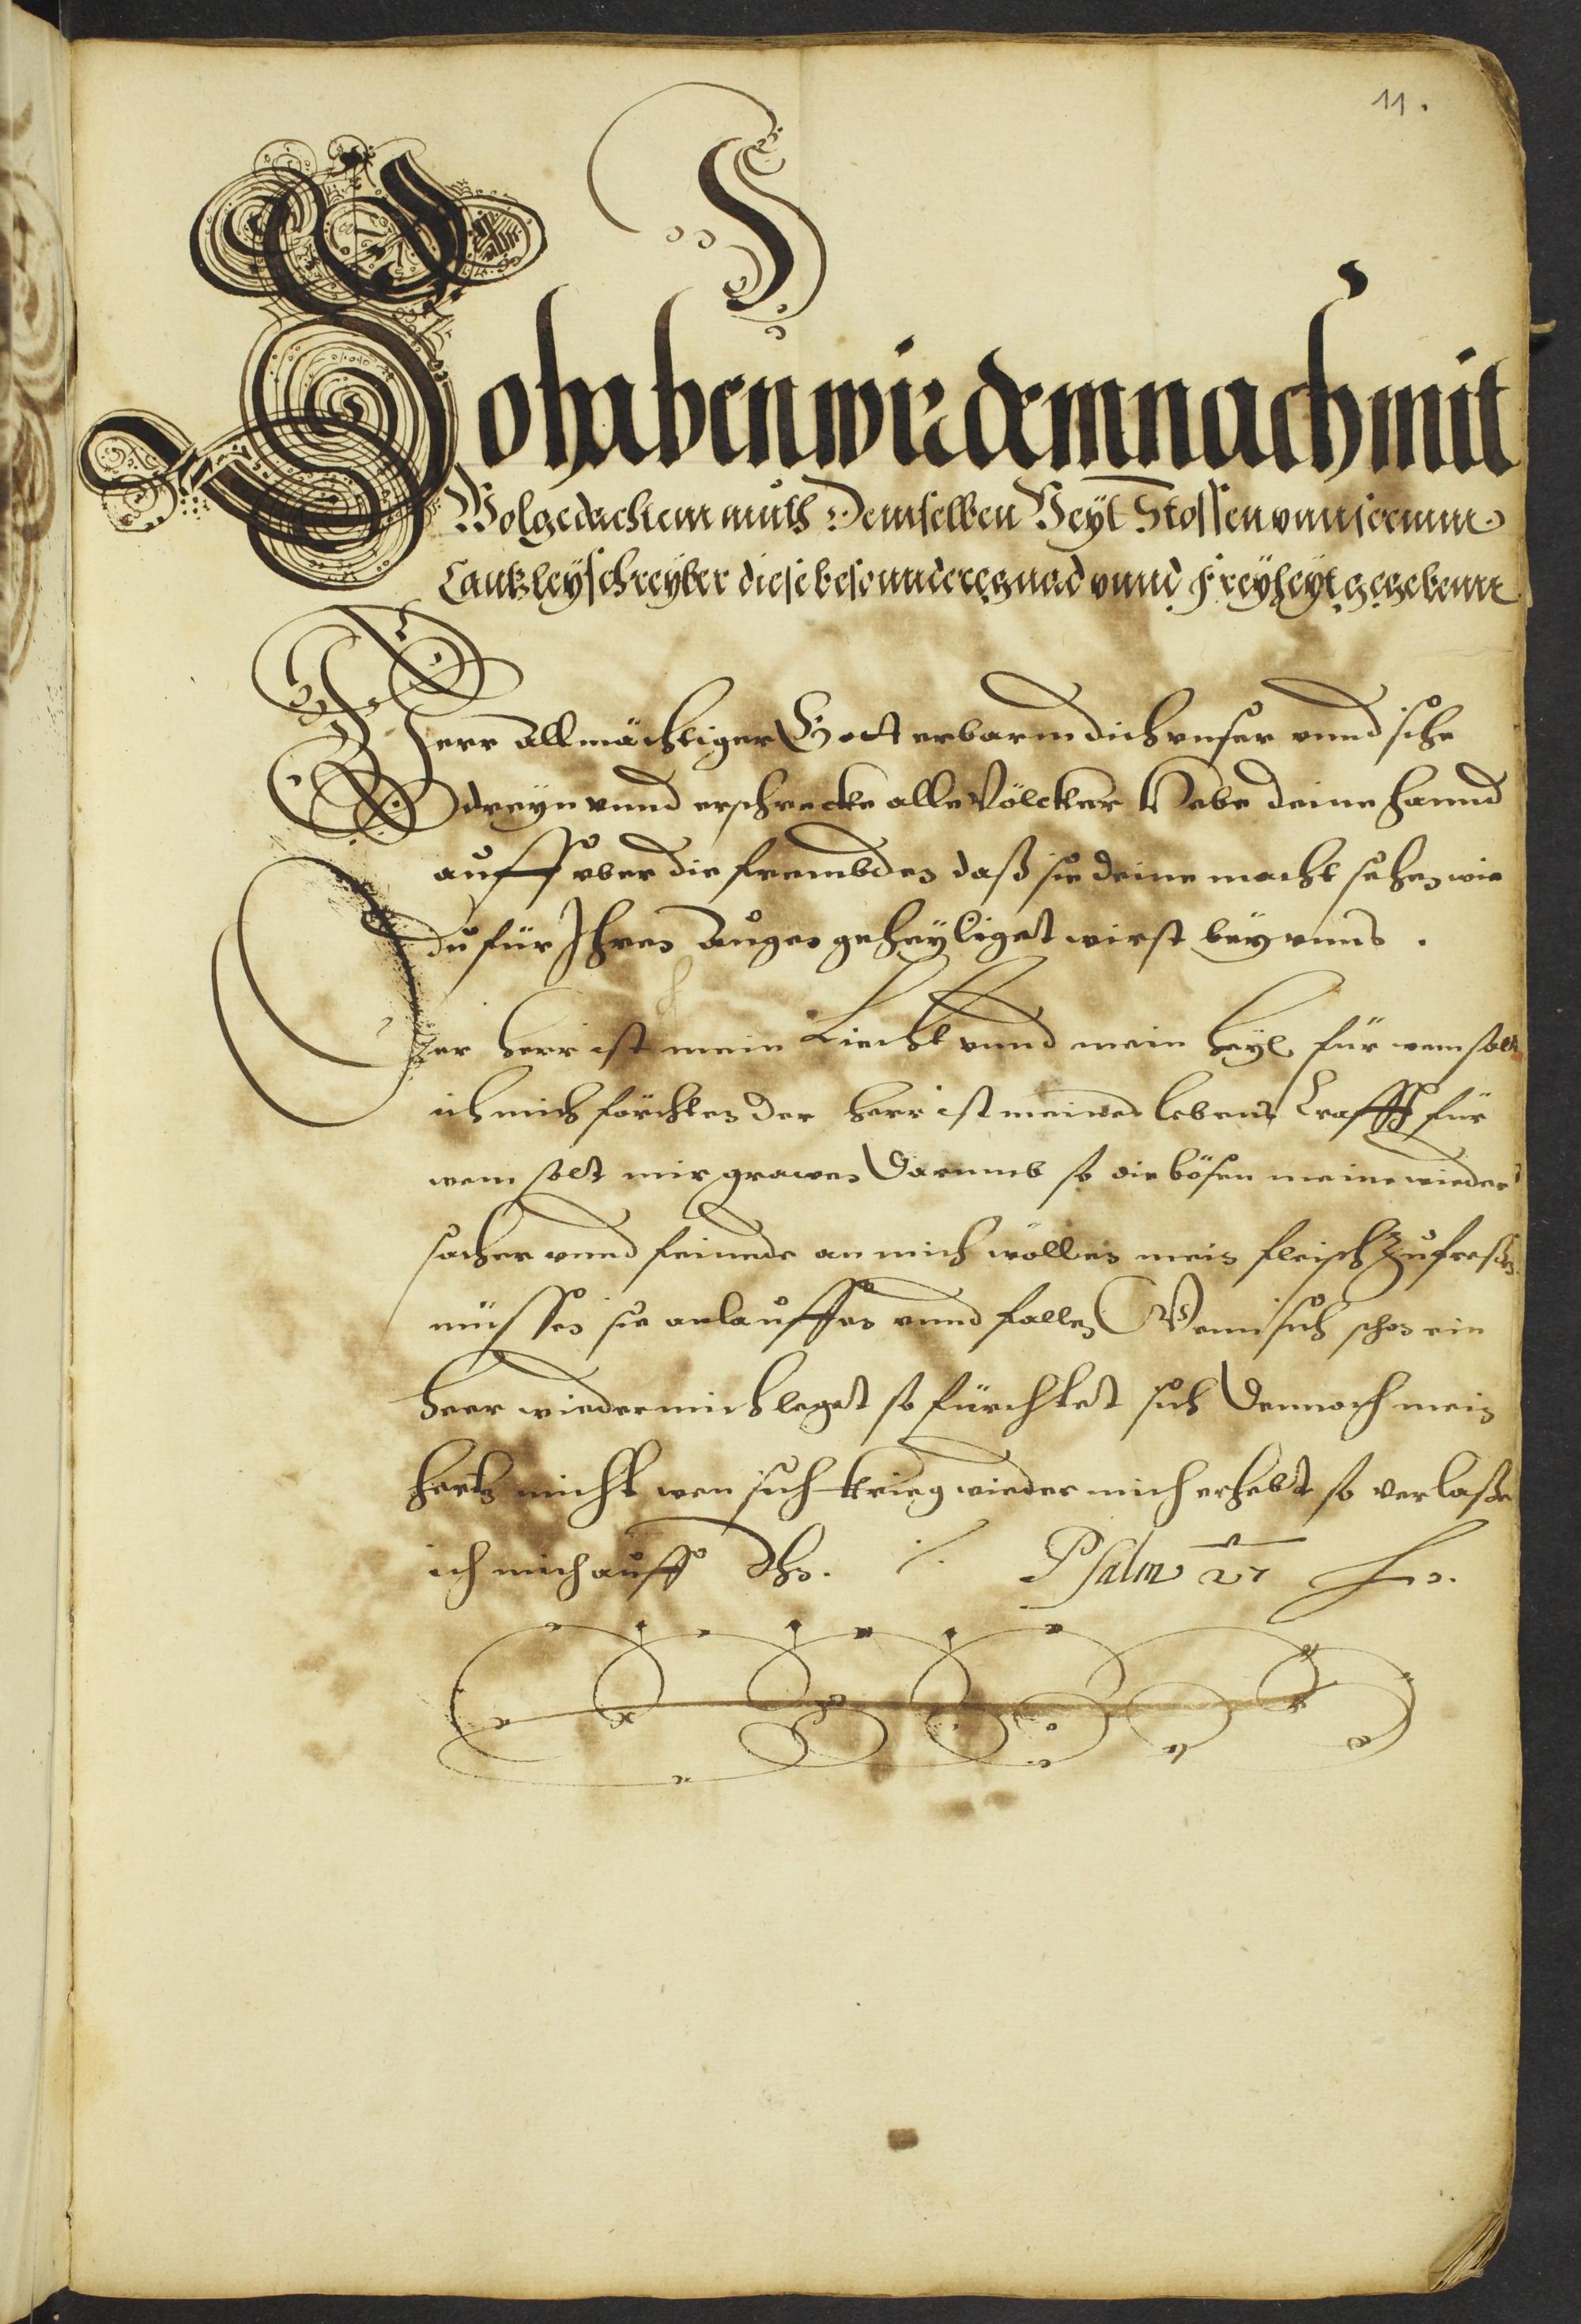 11.
S
So haben wir demnach mit
Wolgedachtem muth Demselben Veyt Stossen vnnserenn
Cantzleyschreyber diese besonndere gnad vnnd Freyheyt gegebenn
Herr Allmächtiger Gott erbarm dich vnser vnnd sihe
dreyn vnnd erschrecke alle Völcker Hebe deine hannd
auff vber die frembden daß sie deine macht sehen wie
du für Ihren Augen geheyliget wirst bey vnns.
Der Herr ist mein Liecht vnnd mein heyl für wem solt
ich mich förchten Der Herr ist meines lebens Krafft für
wem solt mir grawen Darumb so die bösen meine wieder
sacher vnnd feinnde an mich wöllen mein fleisch Zufressen
müssen sie anlauffen vnnd fallen Wenn sich schon ein
Heer wieder mich leget so fürchtet sich Dennoch mein
hertz nicht wen sich Krieg wieder mich erhebt so verlaße
ich mich auff Ihn. Psalm 27